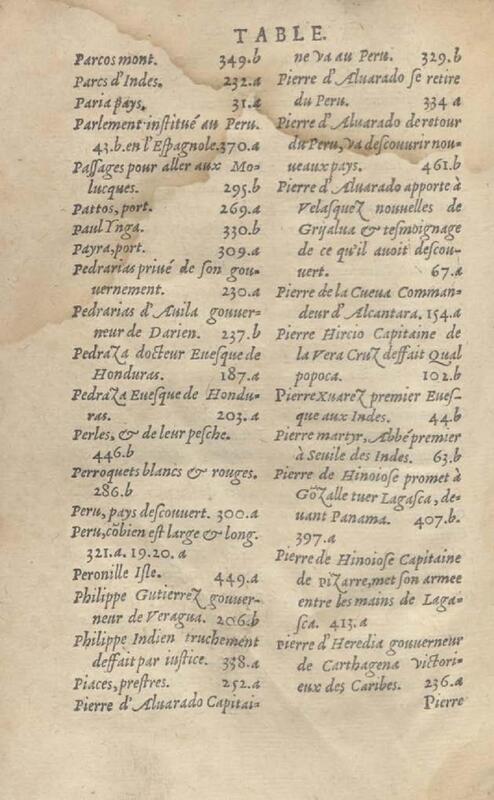 TABLE.
Parcos mont. 349.b
Parcs d'Indes. 232.a
Paria pays. 31.a
Parlement institué au Peru.
43.b. en l'Espagnole. 370.a
Passages pour aller aux Mo-
lucques. 295.b
Pattos, port. 269.a
Paul Ynga. 330.b
Payra, port. 309.a
Pedrarias privé de son gou-
uernement. 230.a
Pedrarias d'Auila gouuer-
neur de Darien. 237.b
Pedraza docteur Euesque de
Honduras. 187.a
Pedraza Euesque de Hondu-
ras. 203.a
Perles, & de leur pesche.
446.b
Perroquets blancs & rouges.
286.b
Peru, pays descouvert. 300.a
Peru, cõbien est large & long.
321.a. 19.20.a
Peronille Isle. 449.a
Philippe Gutierrez gouuer-
neur de Veragua. 206.b
Philippe Indien truchement
deffait par iustice. 338.a
Piaces, prestres. 252.a
Pierre d'Aluarado Capitai-
ne va au Peru. 329.b
Pierre d'Aluarado se retire
du Peru. 334 a
Pierre d'Aluarado de retour
du Peru, va descouurir nou-
ueaux pays. 461.b
Pierre d'Aluarado apporte à
Velasquez nouuelles de
Grijalua & tesmoignage
de ce qu'il auoit descou-
uert. 67.a
Pierre de la Cueua Comman-
deur d'Alcantara. 154.a
Pierre Hircio Capitaine de
la Vera Cruz deffait Qual
popoca. 102.b
Pierre Xuarez premier Eues-
que aux Indes. 44.b
Pierre martyr, Abbé premier
à Seuile des Indes. 63.b
Pierre de Hinoiose promet à
Gõzalle tuer Lagasca, de-
uant Panama. 407.b.
397.a
Pierre de Hinoiose Capitaine
de Pizarre, met son armee
entre les mains de Laga-
sca. 413.a
Pierre d'Heredia gouuerneur
de Carthagena victori-
eux des Caribes. 236.a
Pierre